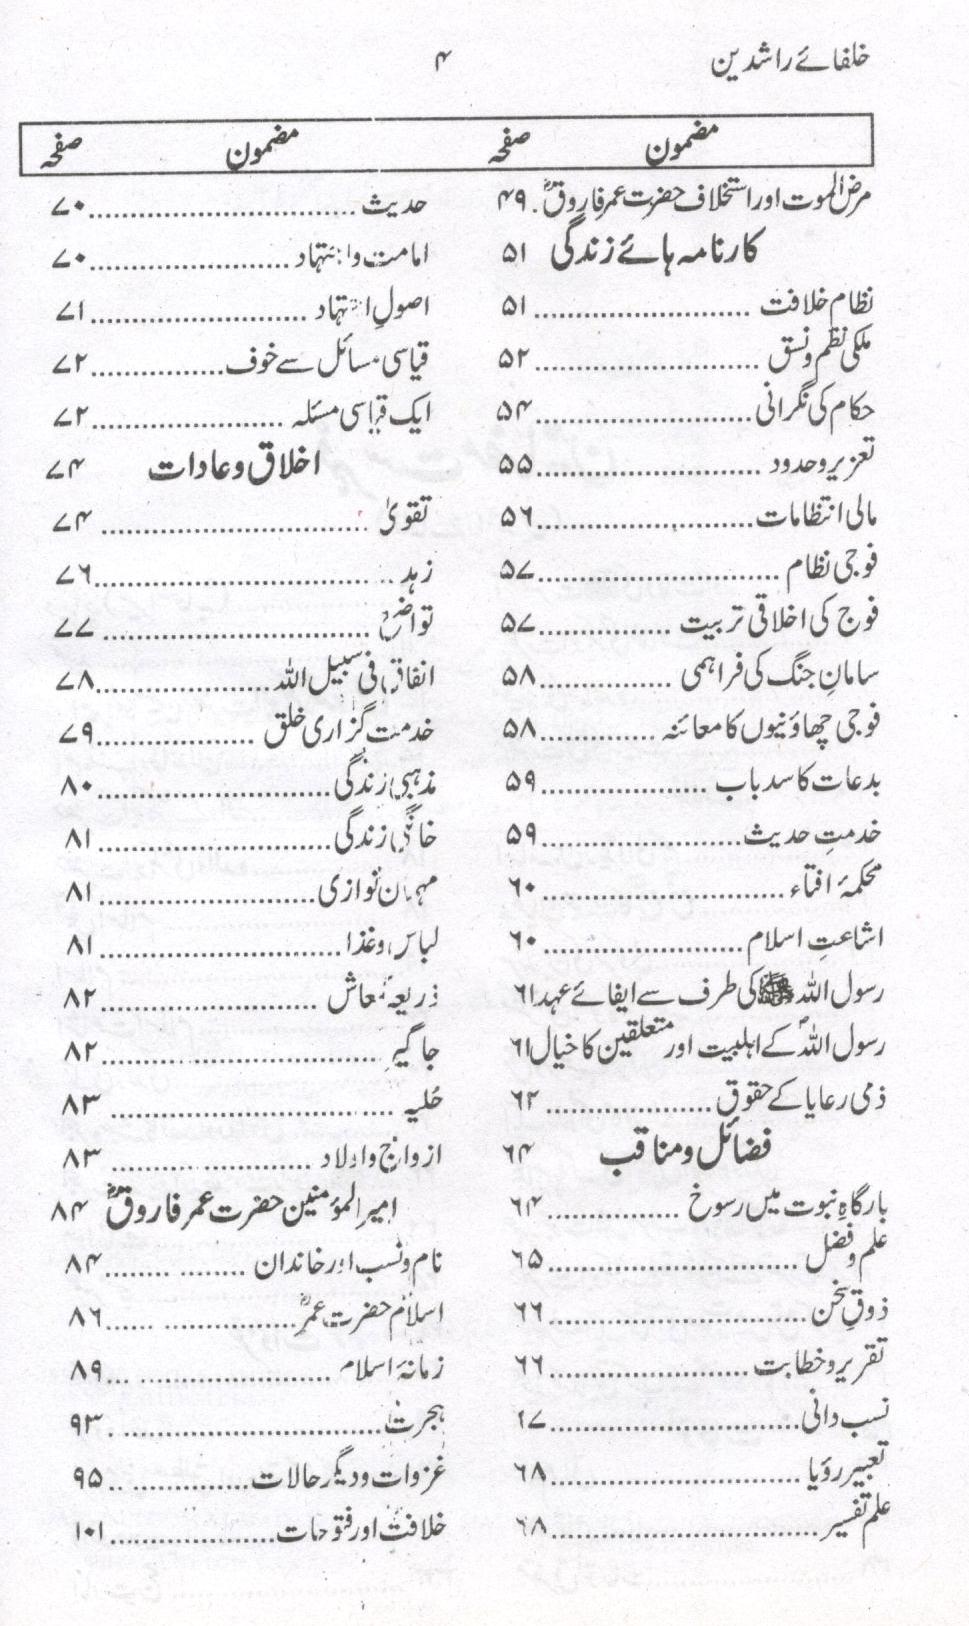 خلفائے راشدین ۴
مضمون صفحہ
مرض الموت اور استخلاف حضرت عمر فاروقؓ . ۴۹
کارنامہ ہائے زندگی ۵۱
نظام خلافت ........................ ۵۱
ملکی نظم و نسق ........................ ۵۲
حکام کی نگرانی ........................ ۵۴
تعزیر و حدود ........................ ۵۵
مالی انتظامات ........................ ۵۶
فوجی نظام ........................ ۵۷
فوج کی اخلاقی تربیت .............. ۵۷
سامانِ جنگ کی فراہمی .............. ۵۸
فوجی چھاؤنیوں کا معائنہ ............ ۵۸
بدعات کا سدباب .................. ۵۹
خدمتِ حدیث ........................ ۵۹
محکمۂ افتاء ........................ ۶۰
اشاعتِ اسلام ........................ ۶۰
رسول اللہ ﷺ کی طرف سے ایفائے عہد ۶۱
رسول اللہؐ کے اہلبیت اور متعلقین کا خیال ۶۱
ذمی رعایا کے حقوق .................. ۶۲
فضائل و مناقب ۶۴
بارگاہِ نبوت میں رسوخ .............. ۶۴
علم و فضل ........................ ۶۵
ذوقِ سخن ........................ ۶۶
تقریر و خطابت ........................ ۶۶
نسب دانی ........................ ۶۷
تعبیر رؤیا ........................ ۶۸
علم تفسیر ........................ ۶۸
مضمون صفحہ
حدیث ........................ ۷۰
امامت و اجتہاد ........................ ۷۰
اصولِ اجتہاد ........................ ۷۱
قیاسی مسائل سے خوف .............. ۷۲
ایک قیاسی مسئلہ .................. ۷۲
اخلاق و عادات ۷۴
تقویٰ ........................ ۷۴
زہد ........................ ۷۶
تواضع ........................ ۷۷
انفاق فی سبیل اللہ .................. ۷۸
خدمت گزاری خلق .................. ۷۹
مذہبی زندگی ........................ ۸۰
خانگی زندگی ........................ ۸۱
مہمان نوازی ........................ ۸۱
لباس و غذا ........................ ۸۱
ذریعہ معاش ........................ ۸۲
جاگیر ........................ ۸۲
حُلیہ ........................ ۸۳
ازواج و اولاد ........................ ۸۳
امیر المؤمنین حضرت عمر فاروقؓ ۸۴
نام و نسب اور خاندان .............. ۸۴
اسلام حضرت عمرؓ .................. ۸۶
زمانۂ اسلام ........................ ۸۹
ہجرت ........................ ۹۳
غزوات و دیگر حالات .............. ۹۵
خلافت اور فتوحات .................. ۱۰۱